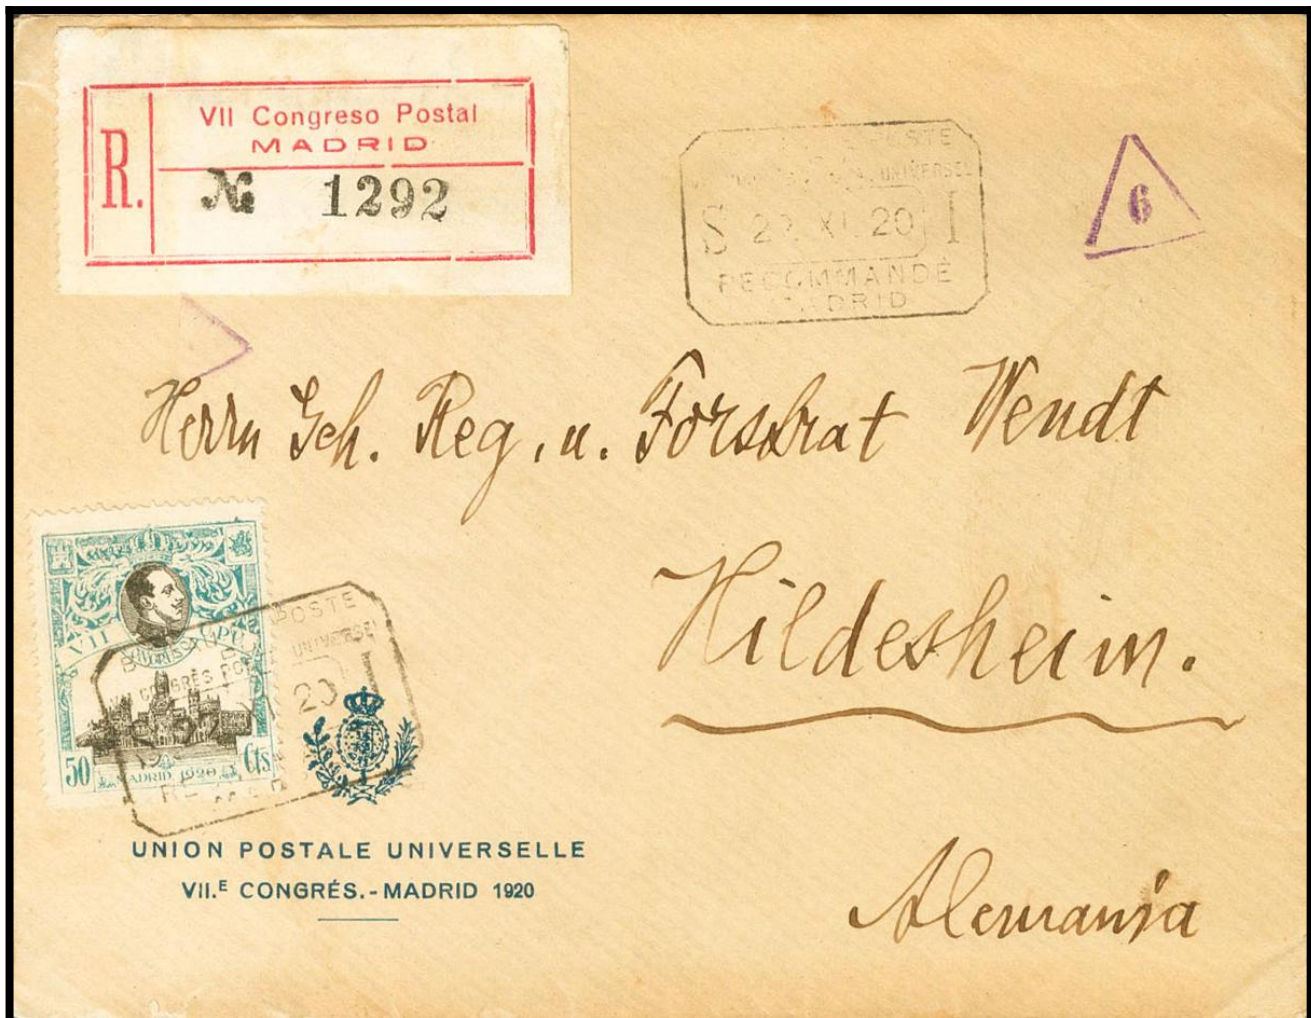 VII Congreso Postal
MADRID
R.
№ 1292
POSTE
UNIVERSEL
S XI. 20 I
RECOMMANDÉ
MADRID
6
Herrn Geh. Reg. u. Forstrat Wendt
Hildesheim.
Alemania
VII CONGRESO UPU
50 Cts
MADRID 1920
POSTE
CONGRÈS UNIVERSEL
20 I
UNION POSTALE UNIVERSELLE
VII.E CONGRÉS.-MADRID 1920